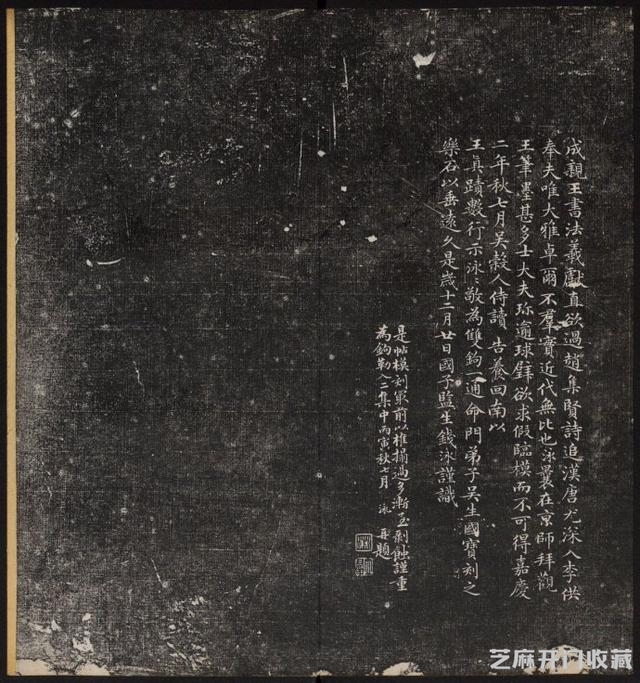 成親王書法羲獻直欲過趙集賢詩追漢唐尤深入李供
奉夫唯大雅卓爾不羣實近代無比也泳曩在京師拜觀
王筆墨甚多士大夫珎逾球璧欲求假臨模而不可得嘉慶
二年秋七月吳穀人侍讀告養回南以
王真蹟數行示泳〻敬為雙鉤一通命門弟子吳生國寶刻之
樂石以垂遠久是歲十二月廿日國子監生錢泳謹識
是帖模刻單前以椎搨過多漸至剝蝕謹重
為鉤勒入二集中丙寅秋七月 泳 再題
芝麻开门收藏